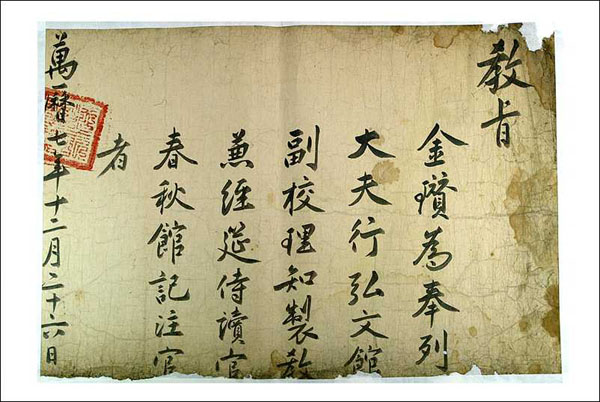 教旨
金瓚為奉列
大夫行弘文館
副校理知製教
兼經筵侍讀官
春秋館記注官
者
萬曆七年十二月二十六日